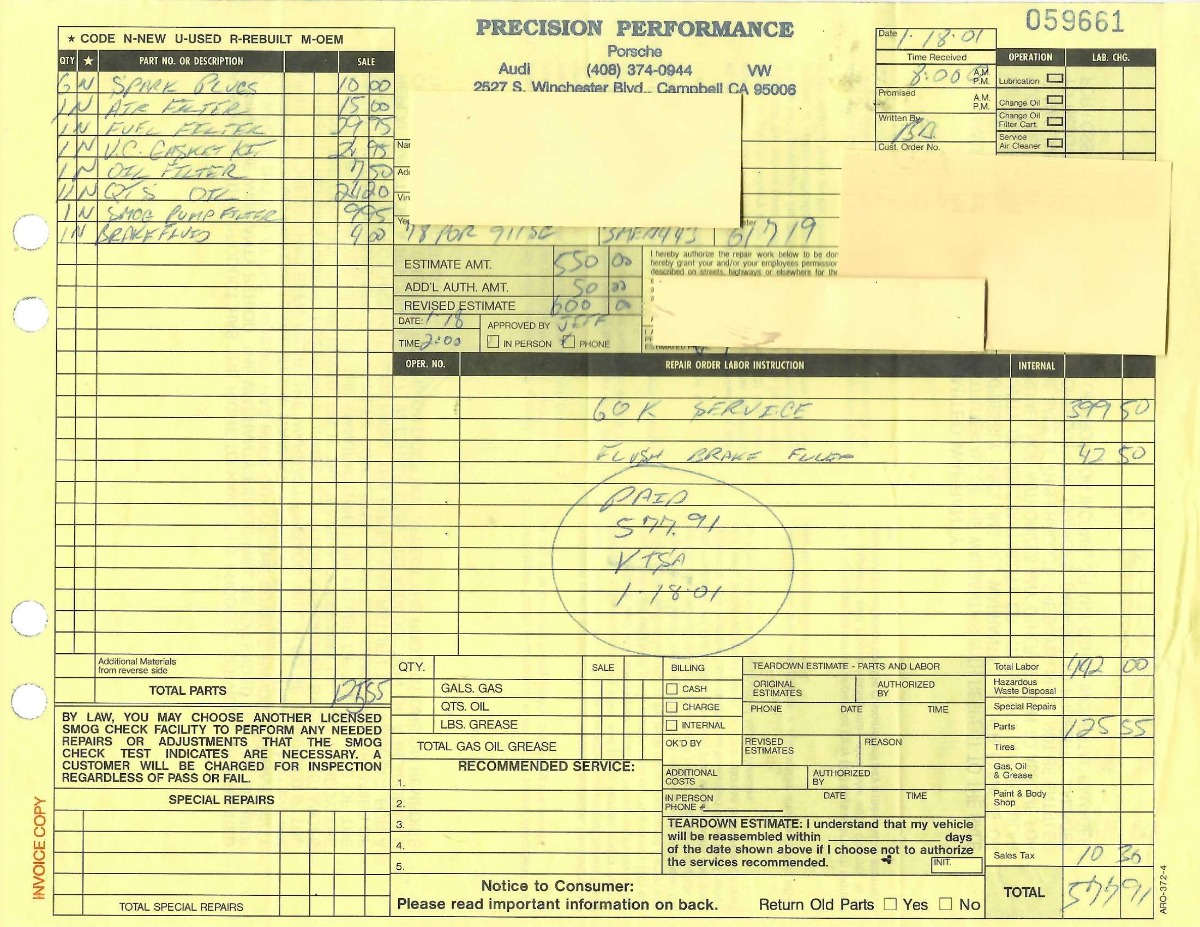 ★ CODE N-NEW U-USED R-REBUILT M-OEM
QTY ★ PART NO. OR DESCRIPTION SALE
6 N SPARK PLUGS 10 00
1 N AIR FILTER 15 00
1 N FUEL FILTER 29 95
1 N V.C. GASKET KIT 24 95
1 N OIL FILTER 7 50
11 N QTS OIL 24 20
1 N SMOG PUMP FILTER 9 95
1 N BRAKE FLUID 4 00
Additional Materials
from reverse side
TOTAL PARTS 125 55
BY LAW, YOU MAY CHOOSE ANOTHER LICENSED
SMOG CHECK FACILITY TO PERFORM ANY NEEDED
REPAIRS OR ADJUSTMENTS THAT THE SMOG
CHECK TEST INDICATES ARE NECESSARY. A
CUSTOMER WILL BE CHARGED FOR INSPECTION
REGARDLESS OF PASS OR FAIL.
SPECIAL REPAIRS
TOTAL SPECIAL REPAIRS
INVOICE COPY
PRECISION PERFORMANCE
Porsche
Audi (408) 374-0944 VW
2527 S. Winchester Blvd., Campbell CA 95006
059661
Date 1·18·01
Time Received
8:00 A.M.
P.M.
Promised A.M.
P.M.
Written By
Cust. Order No.
OPERATION LAB. CHG.
Lubrication
Change Oil
Change Oil
Filter Cart.
Service
Air Cleaner
78 POR 911SC 61719
ESTIMATE AMT. 550 00
ADD'L AUTH. AMT. 50 00
REVISED ESTIMATE 600 00
DATE: 1/18 APPROVED BY JEFF
TIME 2:00 IN PERSON PHONE
I hereby authorize the repair work below to be
hereby grant you and/or your employees
described on streets, highways or elsewhere for the
OPER. NO. REPAIR ORDER LABOR INSTRUCTION INTERNAL
60 K SERVICE 399 50
FLUSH BRAKE FLUID 42 50
PAID
577.91
VISA
1·18·01
QTY. SALE
GALS. GAS
QTS. OIL
LBS. GREASE
TOTAL GAS OIL GREASE
RECOMMENDED SERVICE:
1.
2.
3.
4.
5.
BILLING
CASH
CHARGE
INTERNAL
OK'D BY
TEARDOWN ESTIMATE - PARTS AND LABOR
ORIGINAL
ESTIMATES
AUTHORIZED
BY
PHONE DATE TIME
REVISED
ESTIMATES
REASON
ADDITIONAL
COSTS
AUTHORIZED
BY
IN PERSON
PHONE #
DATE TIME
TEARDOWN ESTIMATE: I understand that my vehicle
will be reassembled within days
of the date shown above if I choose not to authorize
the services recommended.
INIT.
Total Labor 442 00
Hazardous
Waste Disposal
Special Repairs
Parts 125 55
Tires
Gas, Oil
& Grease
Paint & Body
Shop
Sales Tax 10 36
TOTAL 577 91
Notice to Consumer:
Please read important information on back.
Return Old Parts Yes No
ARO-372-4